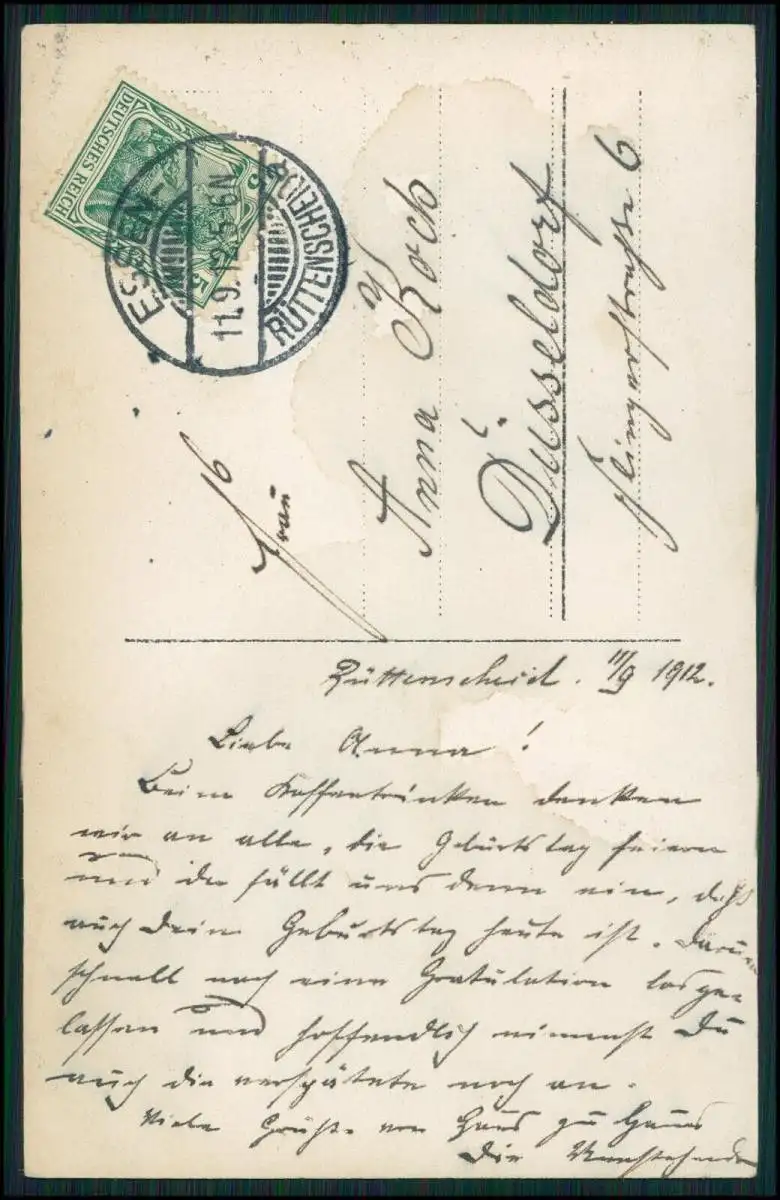 DEUTSCHES REICH
5
5
ESSEN-
11.9.12. 5-6N
RÜTTENSCHEID
Frau
Anna Koch
Düsseldorf
Flingerstraße 6
Rüttenscheid. 11/9 1912.
Liebe Anna!
Beim Kaffeetrinken denken
wir an alle, die Geburtstag feiern
und da fällt uns denn ein, daß
auch Dein Geburtstag heute ist. Darum
schnell noch eine Gratulation losge-
lassen und hoffendlich nimmst Du
auch die verspätete noch an.
Viele Grüße von Haus zu Haus
Die Umstehenden